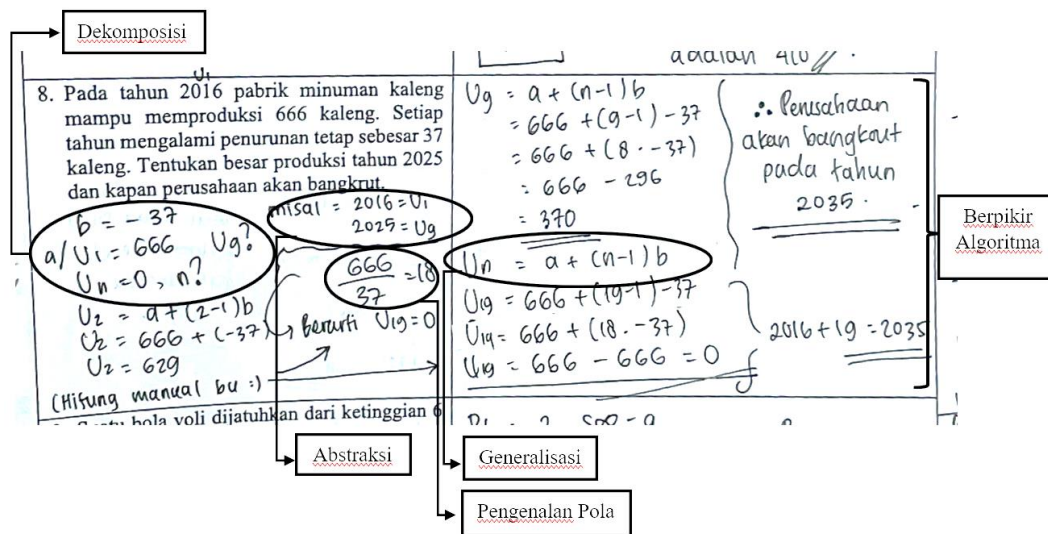 Dekomposisi
adalah 410 //.
U₁
8. Pada tahun 2016 pabrik minuman kaleng
mampu memproduksi 666 kaleng. Setiap
tahun mengalami penurunan tetap sebesar 37
kaleng. Tentukan besar produksi tahun 2025
dan kapan perusahaan akan bangkrut.
b = - 37
a/U₁ = 666 U₉?
Uₙ = 0, n?
U₂ = a + (2-1)b
U₂ = 666 + (-37)
U₂ = 629
(Hitung manual bu :)
misal = 2016 = U₁
2025 = U₉
666/37 = 18
Berarti U₁₉ = 0
U₉ = a + (n-1) b
= 666 + (9-1) - 37
= 666 + (8 . -37)
= 666 - 296
= 370
Uₙ = a + (n-1) b
U₁₉ = 666 + (19-1) - 37
U₁₉ = 666 + (18 . -37)
U₁₉ = 666 - 666 = 0
∴ Perusahaan
akan bangkrut
pada tahun
2035.
2016 + 19 = 2035
Berpikir
Algoritma
bola voli dijatuhkan dari ketinggian 6
Abstraksi
Generalisasi
Pengenalan Pola